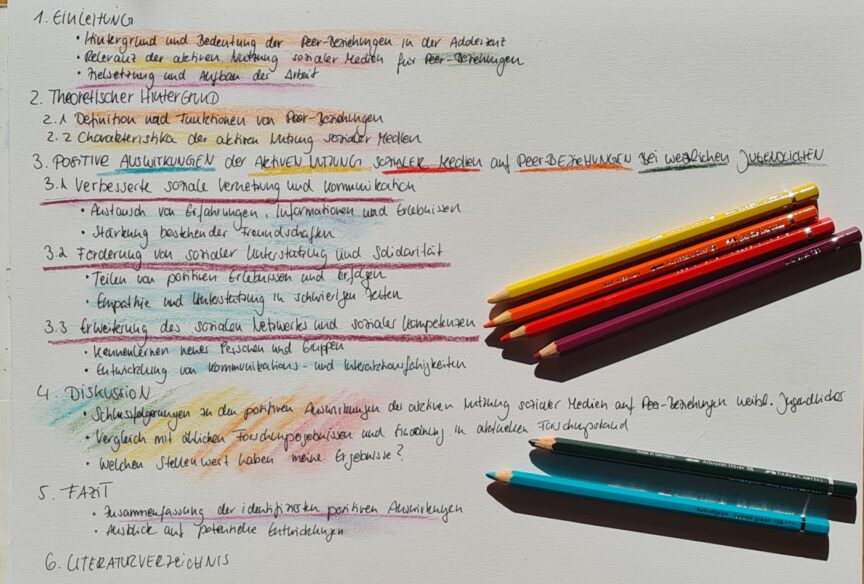 1. EINLEITUNG
• Hintergrund und Bedeutung der Peer-Beziehungen in der Adoleszenz
• Relevanz der aktiven Nutzung sozialer Medien für Peer-Beziehungen
• Zielsetzung und Aufbau der Arbeit
2. Theoretischer HINTERGRUND
2.1 Definition und Funktionen von Peer-Beziehungen
2.2 Charakteristika der aktiven Nutzung sozialer Medien
3. POSITIVE AUSWIRKUNGEN der AKTIVEN NUTZUNG SOZIALER MEDIEN auf PEERBEZIEHUNGEN BEI WEIBLICHEN JUGENDLICHEN
3.1 Verbesserte soziale Vernetzung und Kommunikation
• Austausch von Erfahrungen, Informationen und Erlebnissen
• Stärkung bestehender Freundschaften
3.2 Förderung von sozialer Unterstützung und Solidarität
• Teilen von positiven Erlebnissen und Erfolgen
• Empathie und Unterstützung in schwierigen Zeiten
3.3 Erweiterung des sozialen Netzwerks und sozialer Kompetenzen
• Kennenlernen neuer Personen und Gruppen
• Entwicklung von Kommunikations- und Interaktionsfähigkeiten
4. DISKUSSION
• Schlussfolgerungen zu den positiven Auswirkungen der aktiven Nutzung sozialer Medien auf Peer-Beziehungen weibl. Jugendlicher
• Vergleich mit ähnlichen Forschungsergebnissen und Einordnung in aktuellen Forschungsstand
• Welchen Stellenwert haben meine Ergebnisse?
5. FAZIT
• Zusammenfassung der identifizierten positiven Auswirkungen
• Ausblick auf potenzielle Entwicklungen
6. LITERATURVERZEICHNIS
FABER-CASTELL